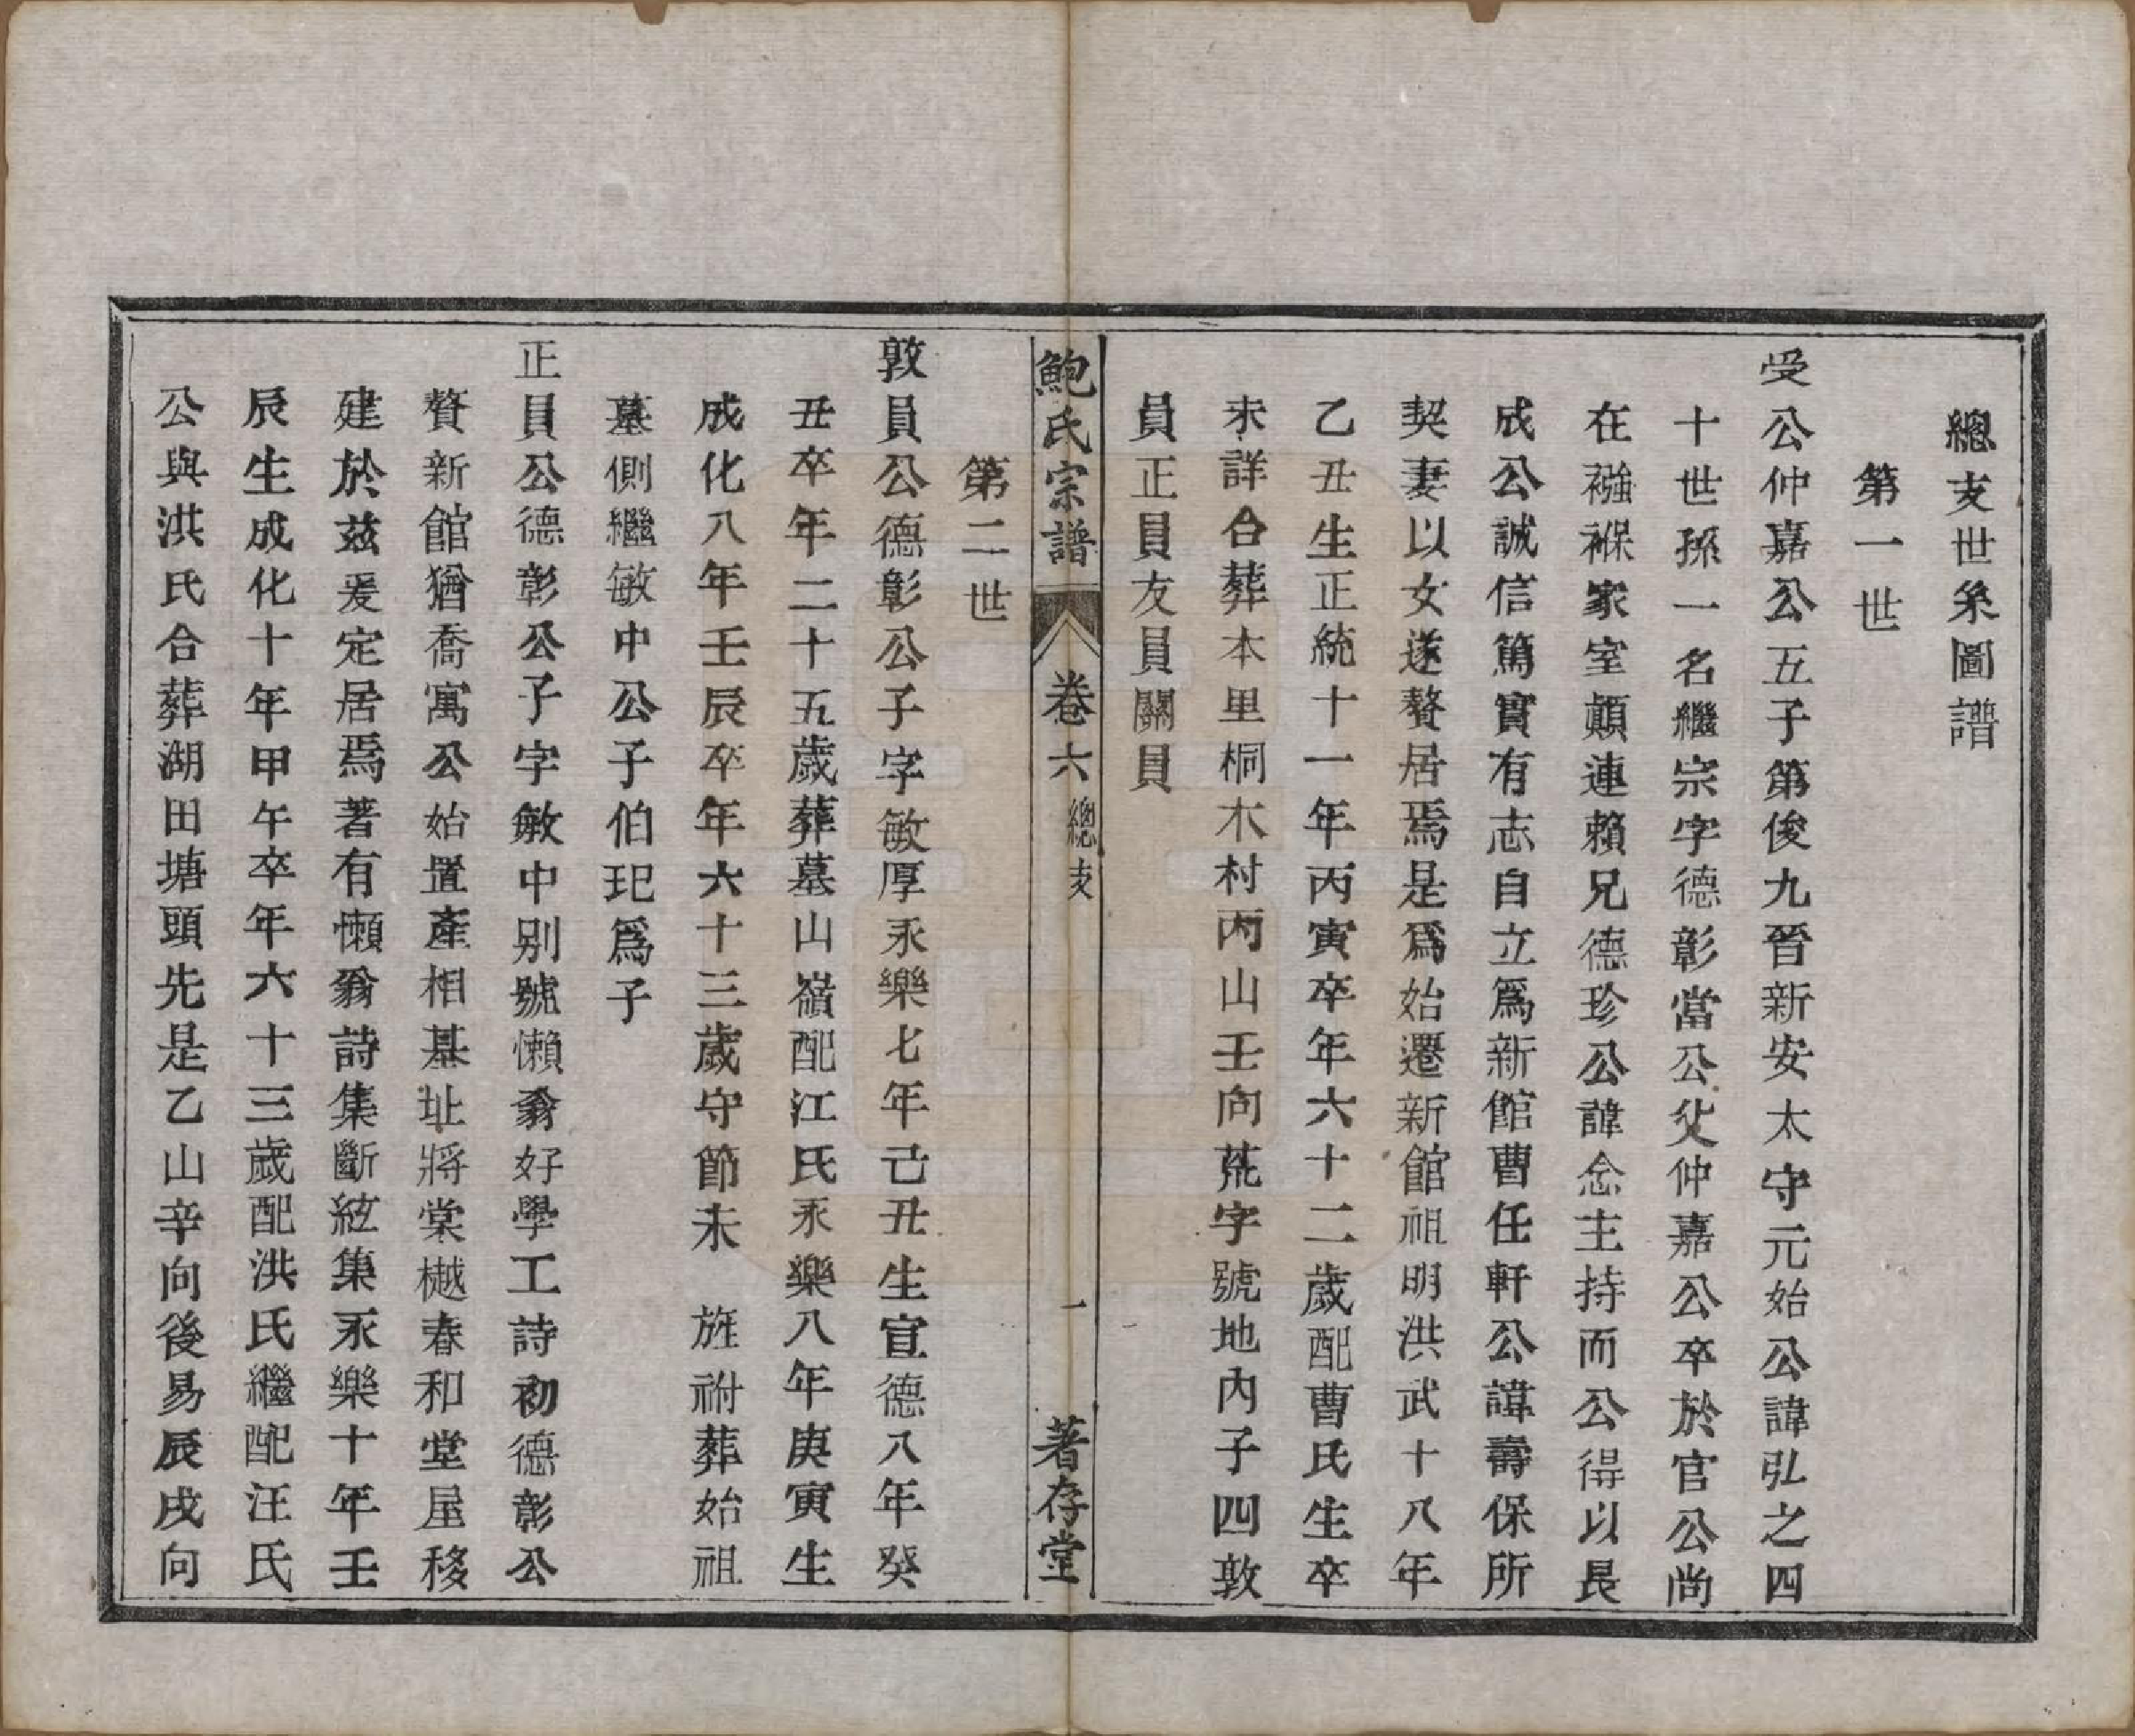 總支世系圖譜
第一世
受公仲嘉公五子第俊九晉新安太守元始公諱弘之四
十世孫一名繼宗字德彰當公父仲嘉公卒於官公尚
在襁褓家室顛連賴兄德珍公諱念主持而公得以長
成公誠信篤實有志自立爲新館曹任軒公諱壽保所
契妻以女遂贅居焉是爲始遷新館祖明洪武十八年
乙丑生正統十一年丙寅卒年六十二歲配曹氏生卒
未詳合葬本里桐木村丙山壬向荒字號地內子四敦
員正員友員關員
鮑氏宗譜 卷六 總支 一 著存堂
第二世
敦員公德彰公子字敏厚永樂七年己丑生宣德八年癸
丑卒年二十五歲葬墓山嶺配江氏永樂八年庚寅生
成化八年壬辰卒年六十三歲守節未 旌祔葬始祖
墓側繼敏中公子伯玘爲子
正員公德彰公子字敏中別號懶翁好學工詩初德彰公
贅新館猶喬寓公始置產相基址將棠樾春和堂屋移
建於茲爰定居焉著有懶翁詩集斷絃集永樂十年壬
辰生成化十年甲午卒年六十三歲配洪氏繼配汪氏
公與洪氏合葬湖田塘頭先是乙山辛向後易辰戌向